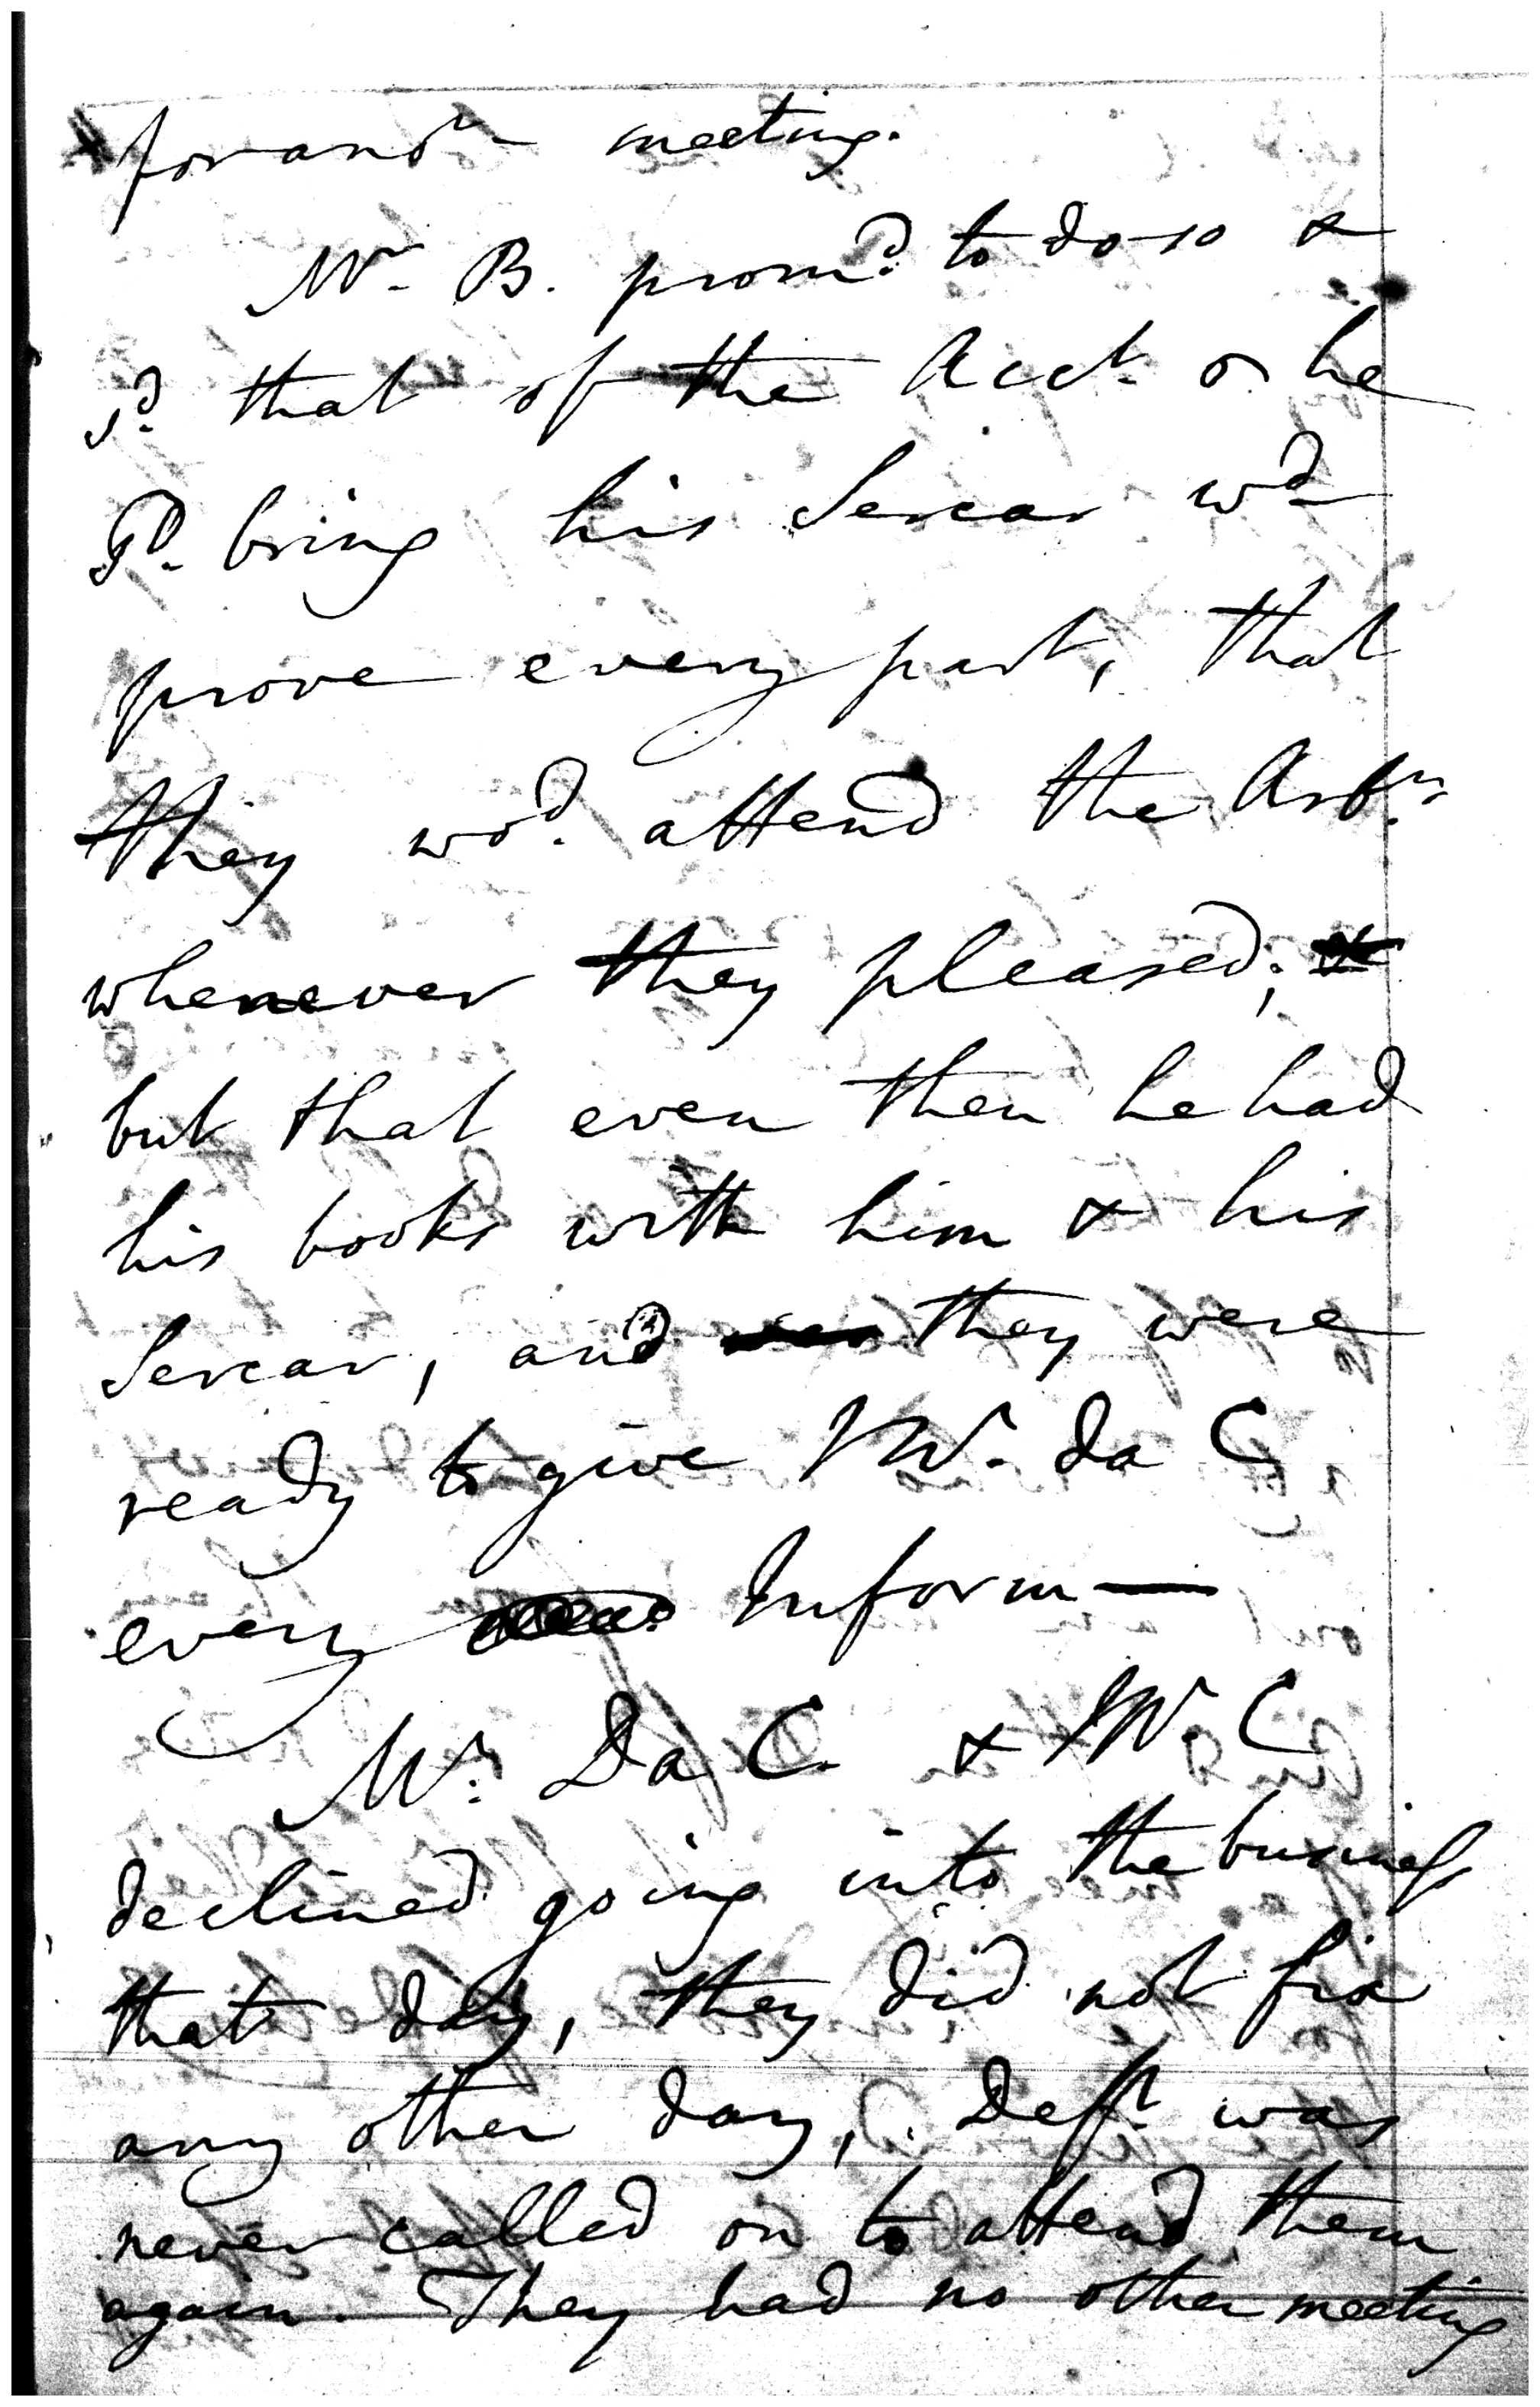 for anor meeting.
Mr. B. promd. to do so &
sd. that of the Acct. & he
bring his Sercar wd
prove every part, that
they wod. attend the Arbrs
whenever they pleased;
but that even then he had
his books with him & his
Sercar, and they were
ready to give Mr. Da C
every Inform—
Mr. Da C. & Mr. C
declined going into the business
that day, they did not fix
any other day, Deft. was
never called on to attend them
again. They had no other meeting